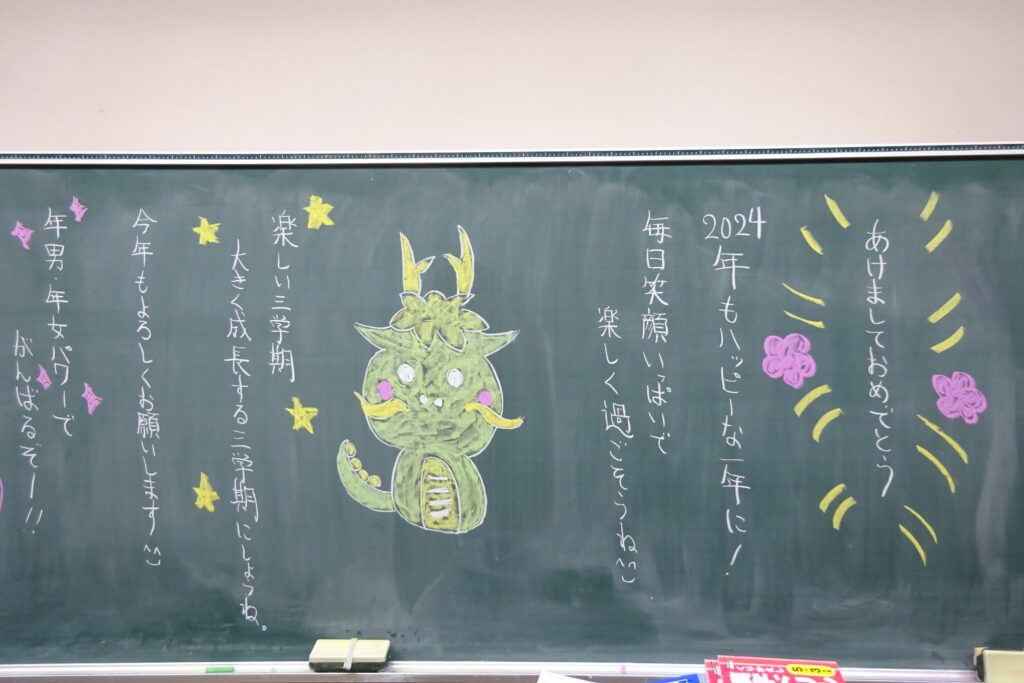 あけましておめでとう
2024年もハッピーな一年に!
毎日笑顔いっぱいで
楽しく過ごそうね^^
楽しい三学期
大きく成長する三学期にしようね。
今年もよろしくお願いします^^
年男・年女パワーで
がんばるぞー!!